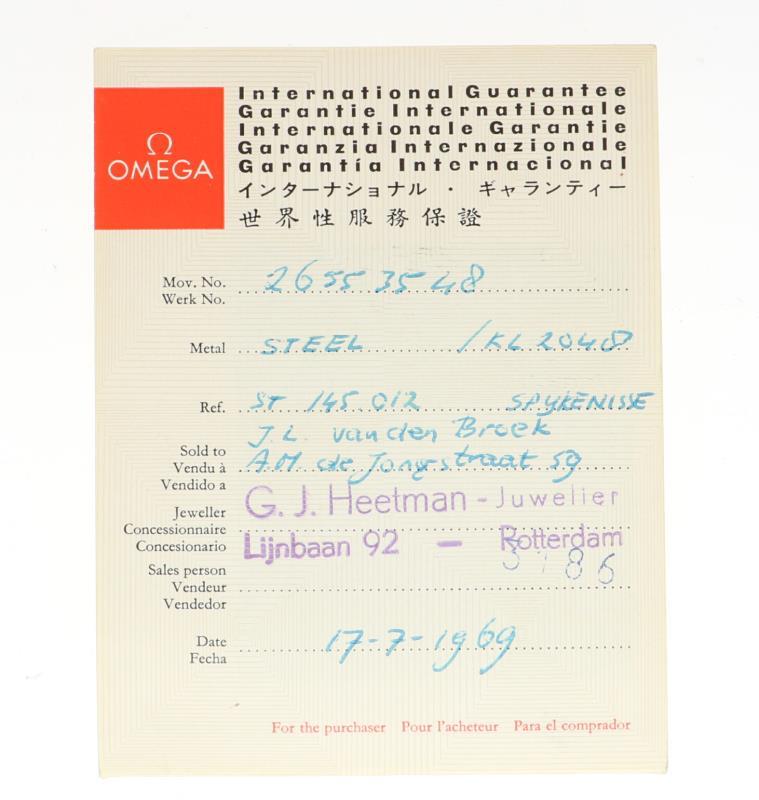 Ω
OMEGA
International Guarantee
Garantie Internationale
Internationale Garantie
Garanzia Internazionale
Garantía Internacional
インターナショナル ・ ギャランティー
世界性服務保證
Mov. No. 26553548
Werk No.
Metal STEEL /KL2048
Ref. ST 145.012 SPYKENISSE
J.L. van den Broek
Sold to
Vendu à A.M. de Jongstraat 59
Vendido a
G. J. Heetman - Juwelier
Jeweller
Concessionnaire
Concesionario Lijnbaan 92 - Rotterdam
86
Sales person
Vendeur
Vendedor
Date 17-7-1969
Fecha
For the purchaser Pour l'acheteur Para el comprador